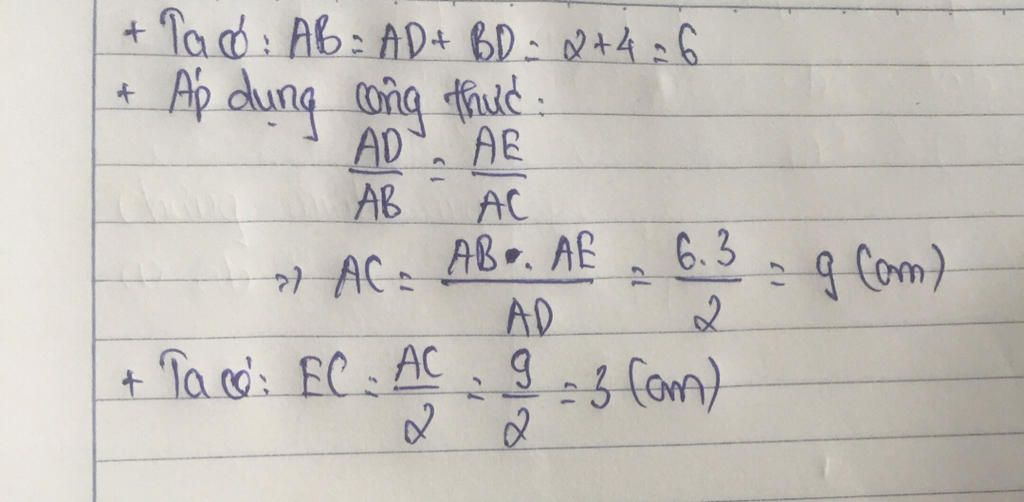 + Ta có: AB = AD + BD = 2+4 = 6
+ Áp dụng công thức:
AD/AB = AE/AC
=> AC = AB . AE/AD = 6.3/2 = 9 (cm)
+ Ta có: EC = AC/2 = 9/2 = 3 (cm)